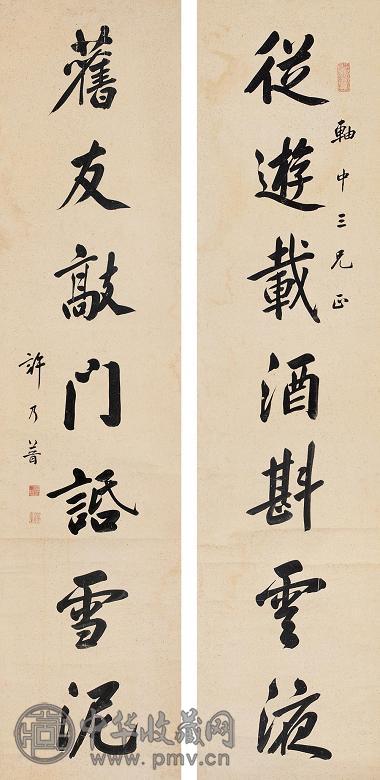 從遊載酒斟雲液
軸中三兄正
舊友敲門話雪泥
許乃普
中华收藏网
www.pmv.cn